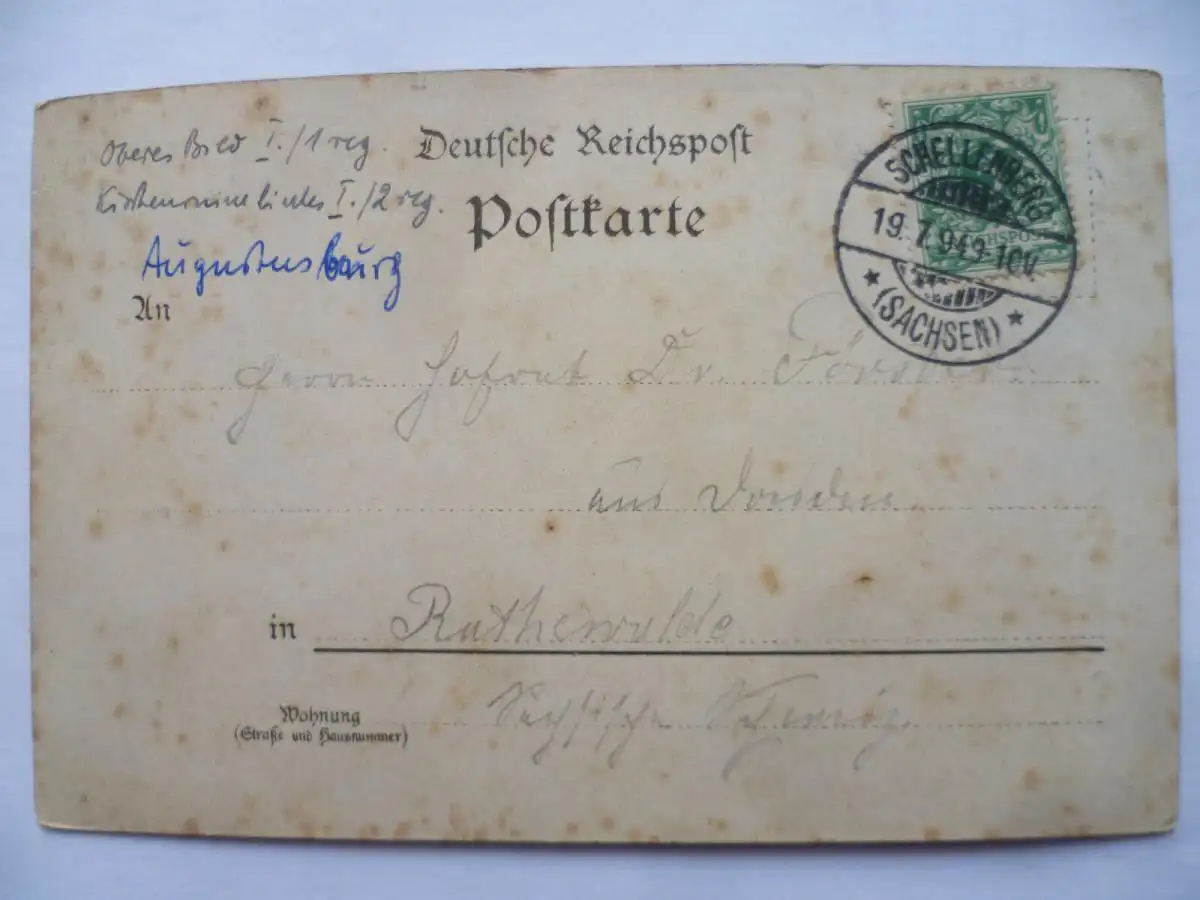 Oberes Bild I./1 reg.
Deutsche Reichspost
I./2 reg.
Postkarte
Augustusburg
SCHELLENBERG
19.7.94.9-10V.
(SACHSEN)
An
Herrn Hofrat Dr. Förster
aus Dresden
in Rathewalde
Wohnung
(Straße und Hausnummer)
Sächsische Schweiz